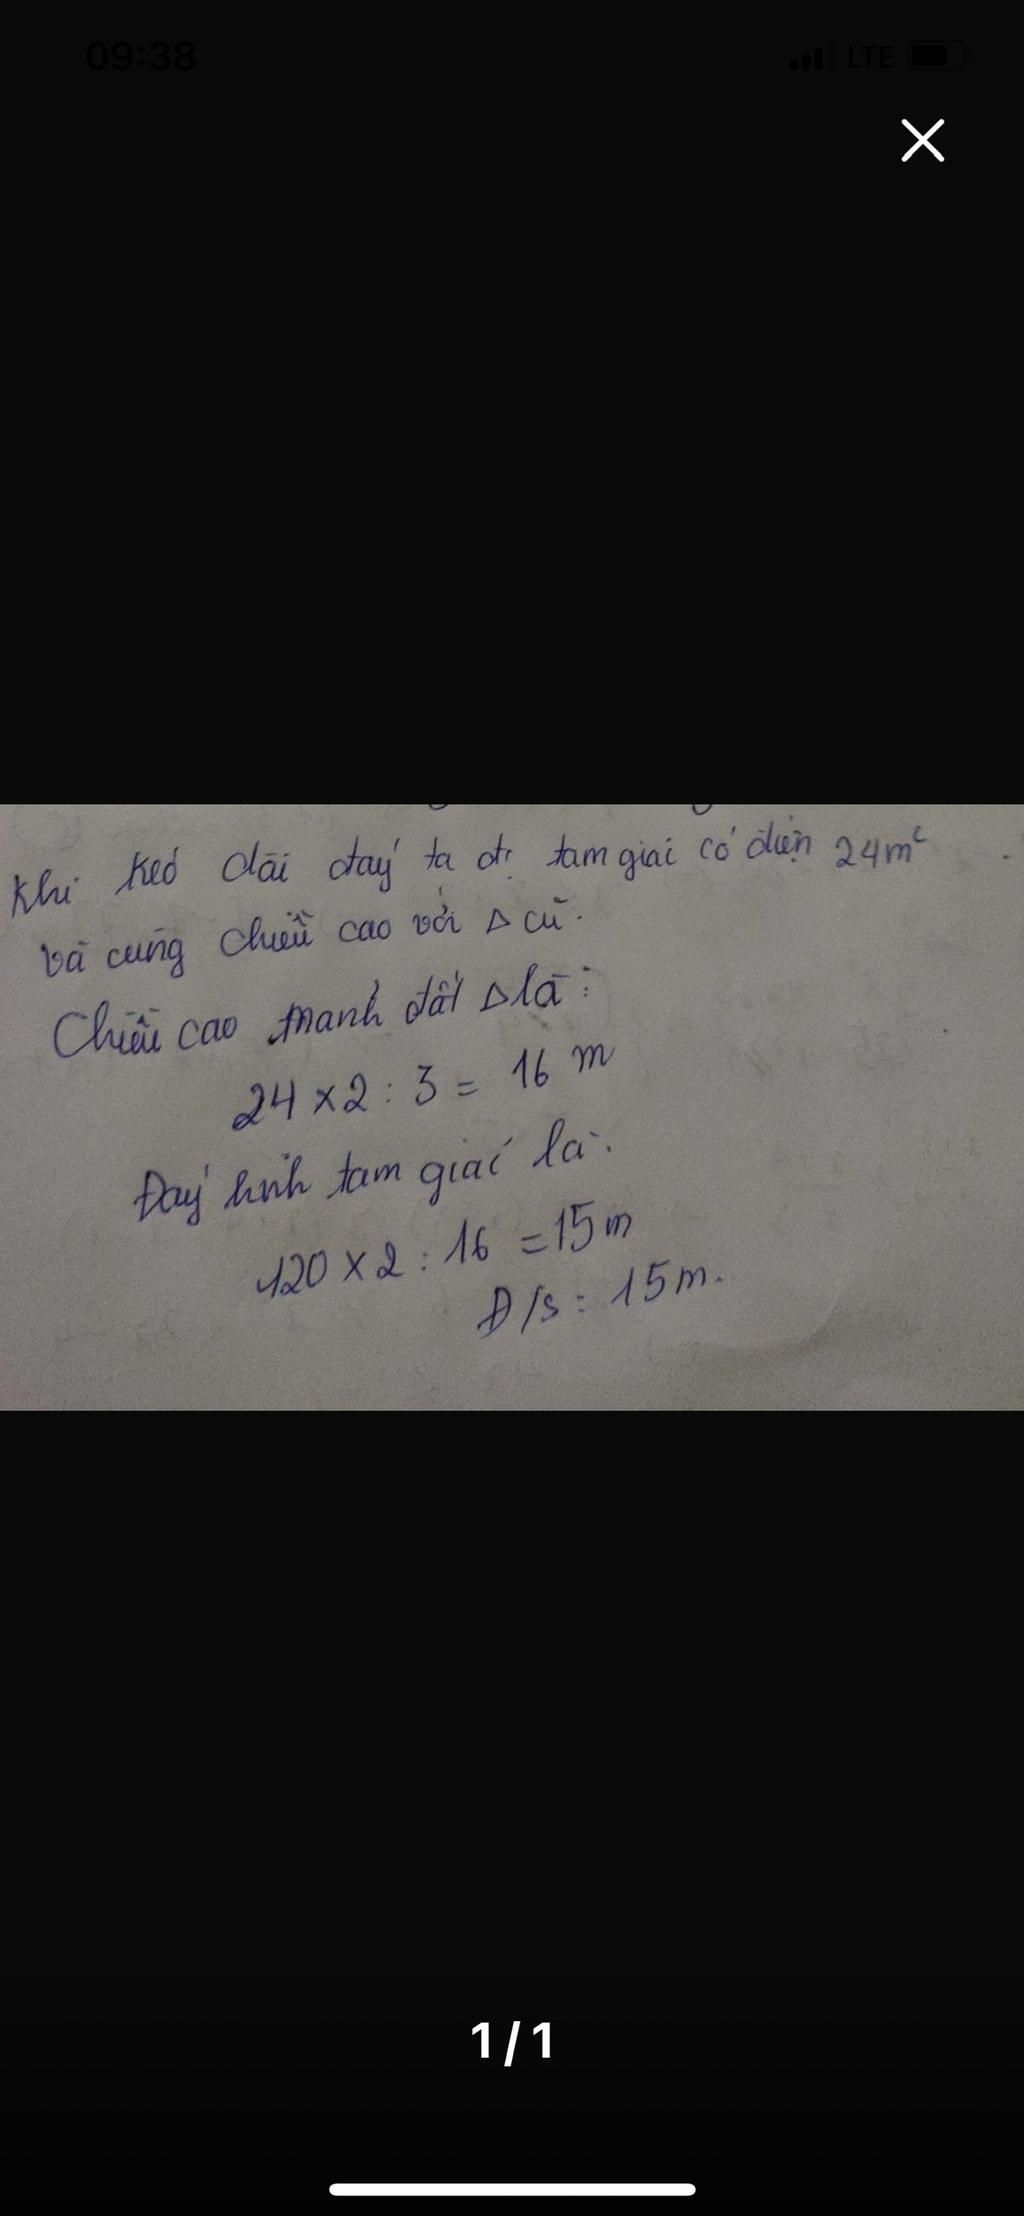 09:38
LTE
Khi kéo dài đáy ta đc tam giác có diện 24m²
và cùng chiều cao với Δ cũ.
Chiều cao mảnh đất Δ là:
24 x 2 : 3 = 16 m
Đáy hình tam giác là:
120 x 2 : 16 = 15m
Đ/s: 15m.
1/1